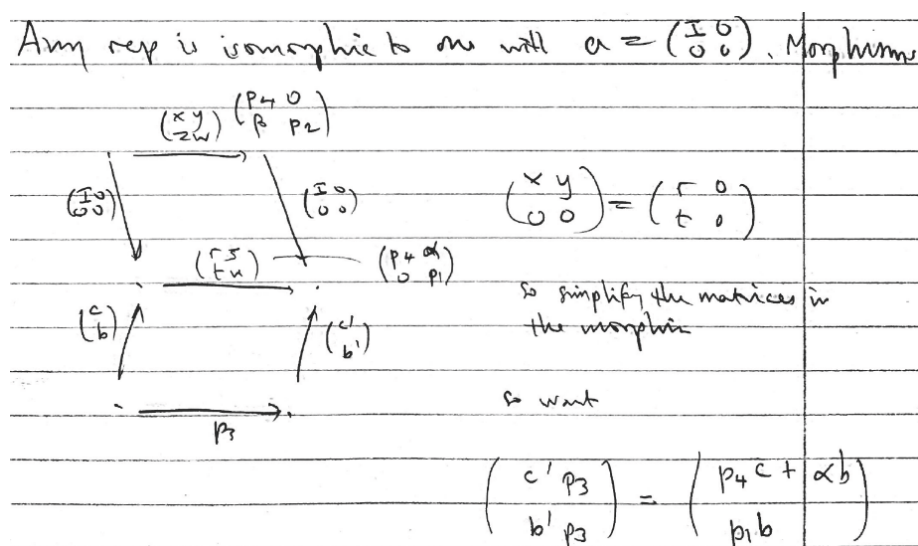 Any rep is isomorphic to one with a = (I 0 / 0 0). Morphisms
(x y / z w) (p4 0 / β p2)
(I 0 / 0 0) (I 0 / 0 0) (x y / 0 0) = (r 0 / t 0)
(r s / t u) (p4 α / 0 p1)
so simplify the matrices in
(c / b) (c' / b') the morphism
so want
p3
(c' p3 / b' p3) = (p4 c + αb / p1 b)